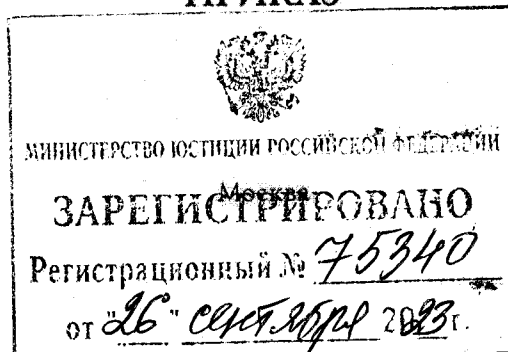 ПРИКАЗ
МИНИСТЕРСТВО ЮСТИЦИИ РОССИЙСКОЙ ФЕДЕРАЦИИ
Москва
ЗАРЕГИСТРИРОВАНО
Регистрационный № 75340
от "26" сентября 2023 г.